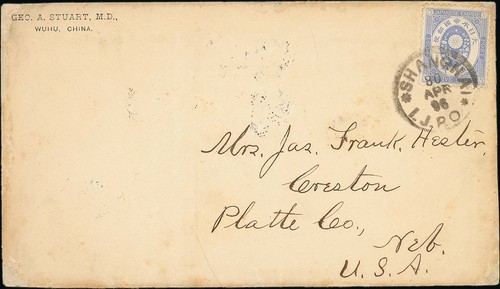 GEO. A. STUART, M.D.,
WUHU, CHINA.
SHANGHAI
30
APR
96
I.J.P.O.
Mrs. Jas. Frank. Hester,
Creston
Platte Co.,
Neb.
U.S.A.